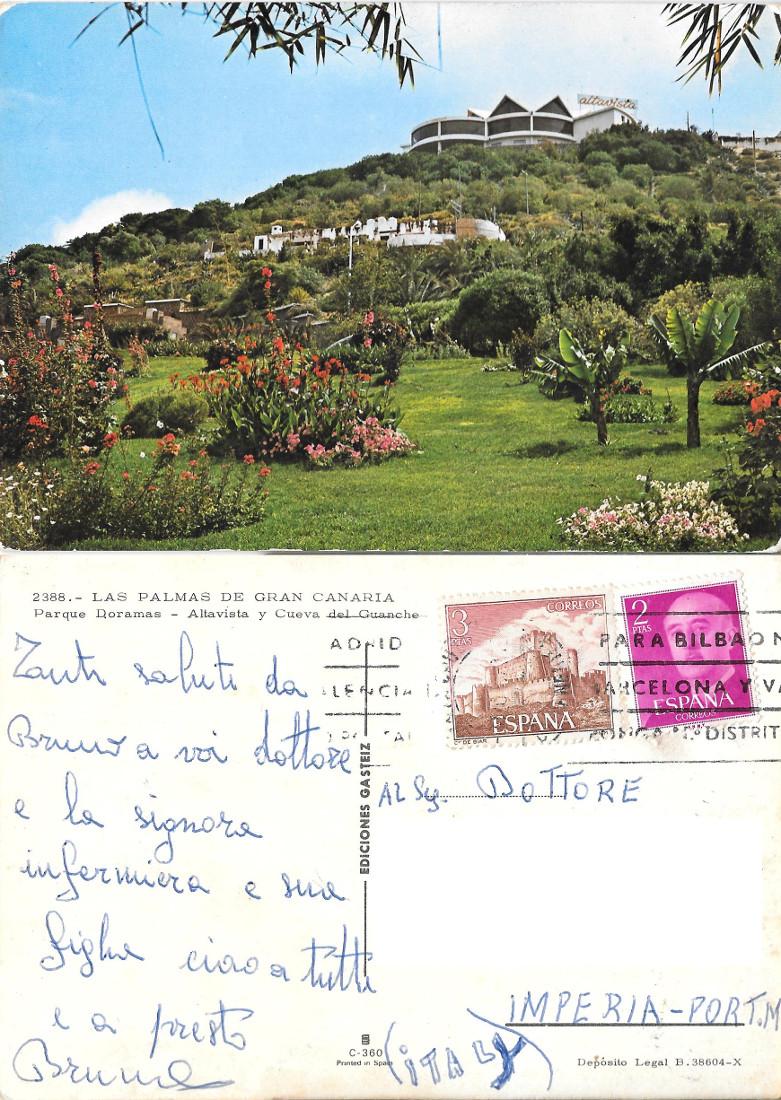 altavista
2388.- LAS PALMAS DE GRAN CANARIA
Parque Doramas - Altavista y Cueva del Guanche
3 PTAS CORREOS
ESPAÑA
Cº DE BIAR
2 PTAS
ESPAÑA
CORREOS
ADRID
LENCIA
PARA BILBAO
ARCELONA Y VA
PONGA DISTRIT
Tanti saluti da
Bruno a voi dottore
e la signora
infermiera e sua
figlia ciao a tutti
e a presto
Bruno
EDICIONES GASTEIZ
AL Sg. DOTTORE
IMPERIA-PORT.M
(iTALY)
C-360
Printed in Spain
Depósito Legal B. 38604-X